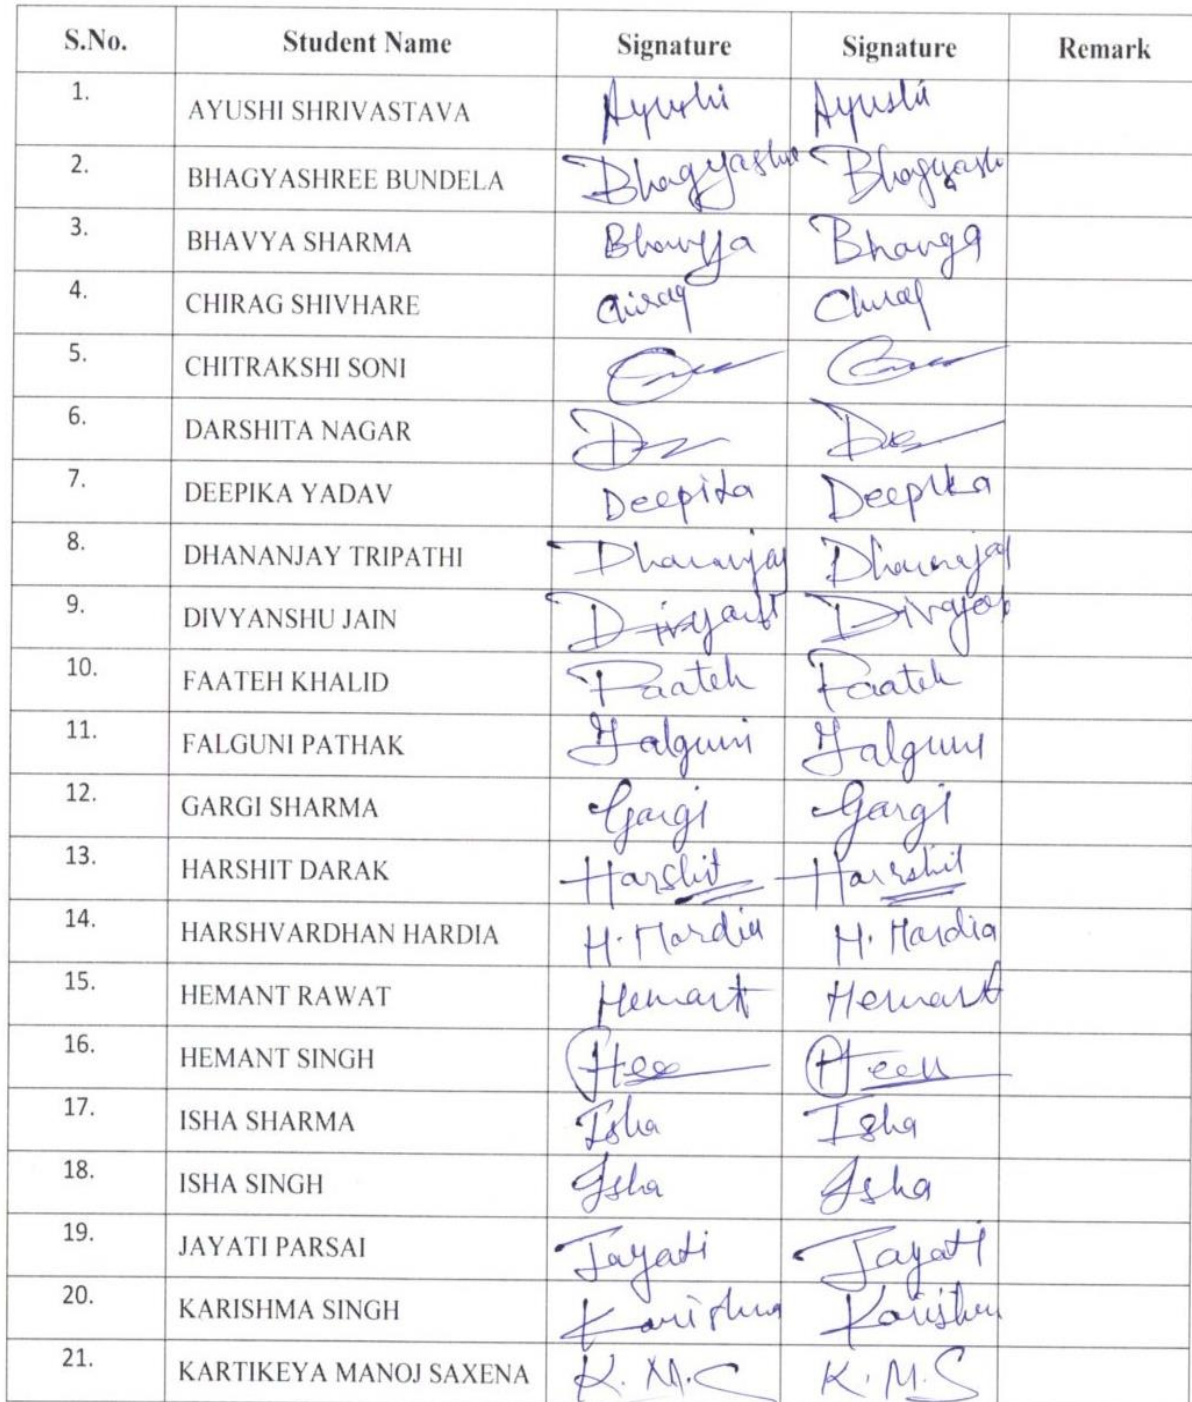 S.No. Student Name Signature Signature Remark
1. AYUSHI SHRIVASTAVA Ayushi Ayushi
2. BHAGYASHREE BUNDELA Bhagyashree Bhagyash
3. BHAVYA SHARMA Bhavya Bhavya
4. CHIRAG SHIVHARE Chirag Chirag
5. CHITRAKSHI SONI
6. DARSHITA NAGAR
7. DEEPIKA YADAV Deepika Deepika
8. DHANANJAY TRIPATHI Dhananjay Dhananjay
9. DIVYANSHU JAIN
10. FAATEH KHALID Faateh Faateh
11. FALGUNI PATHAK Falguni Falguni
12. GARGI SHARMA Gargi Gargi
13. HARSHIT DARAK Harshit Harshit
14. HARSHVARDHAN HARDIA H. Hardia H. Hardia
15. HEMANT RAWAT Hemant Hemant
16. HEMANT SINGH
17. ISHA SHARMA Isha Isha
18. ISHA SINGH Isha Isha
19. JAYATI PARSAI Jayati Jayati
20. KARISHMA SINGH Karishma Karishma
21. KARTIKEYA MANOJ SAXENA K. M. S K. M. S